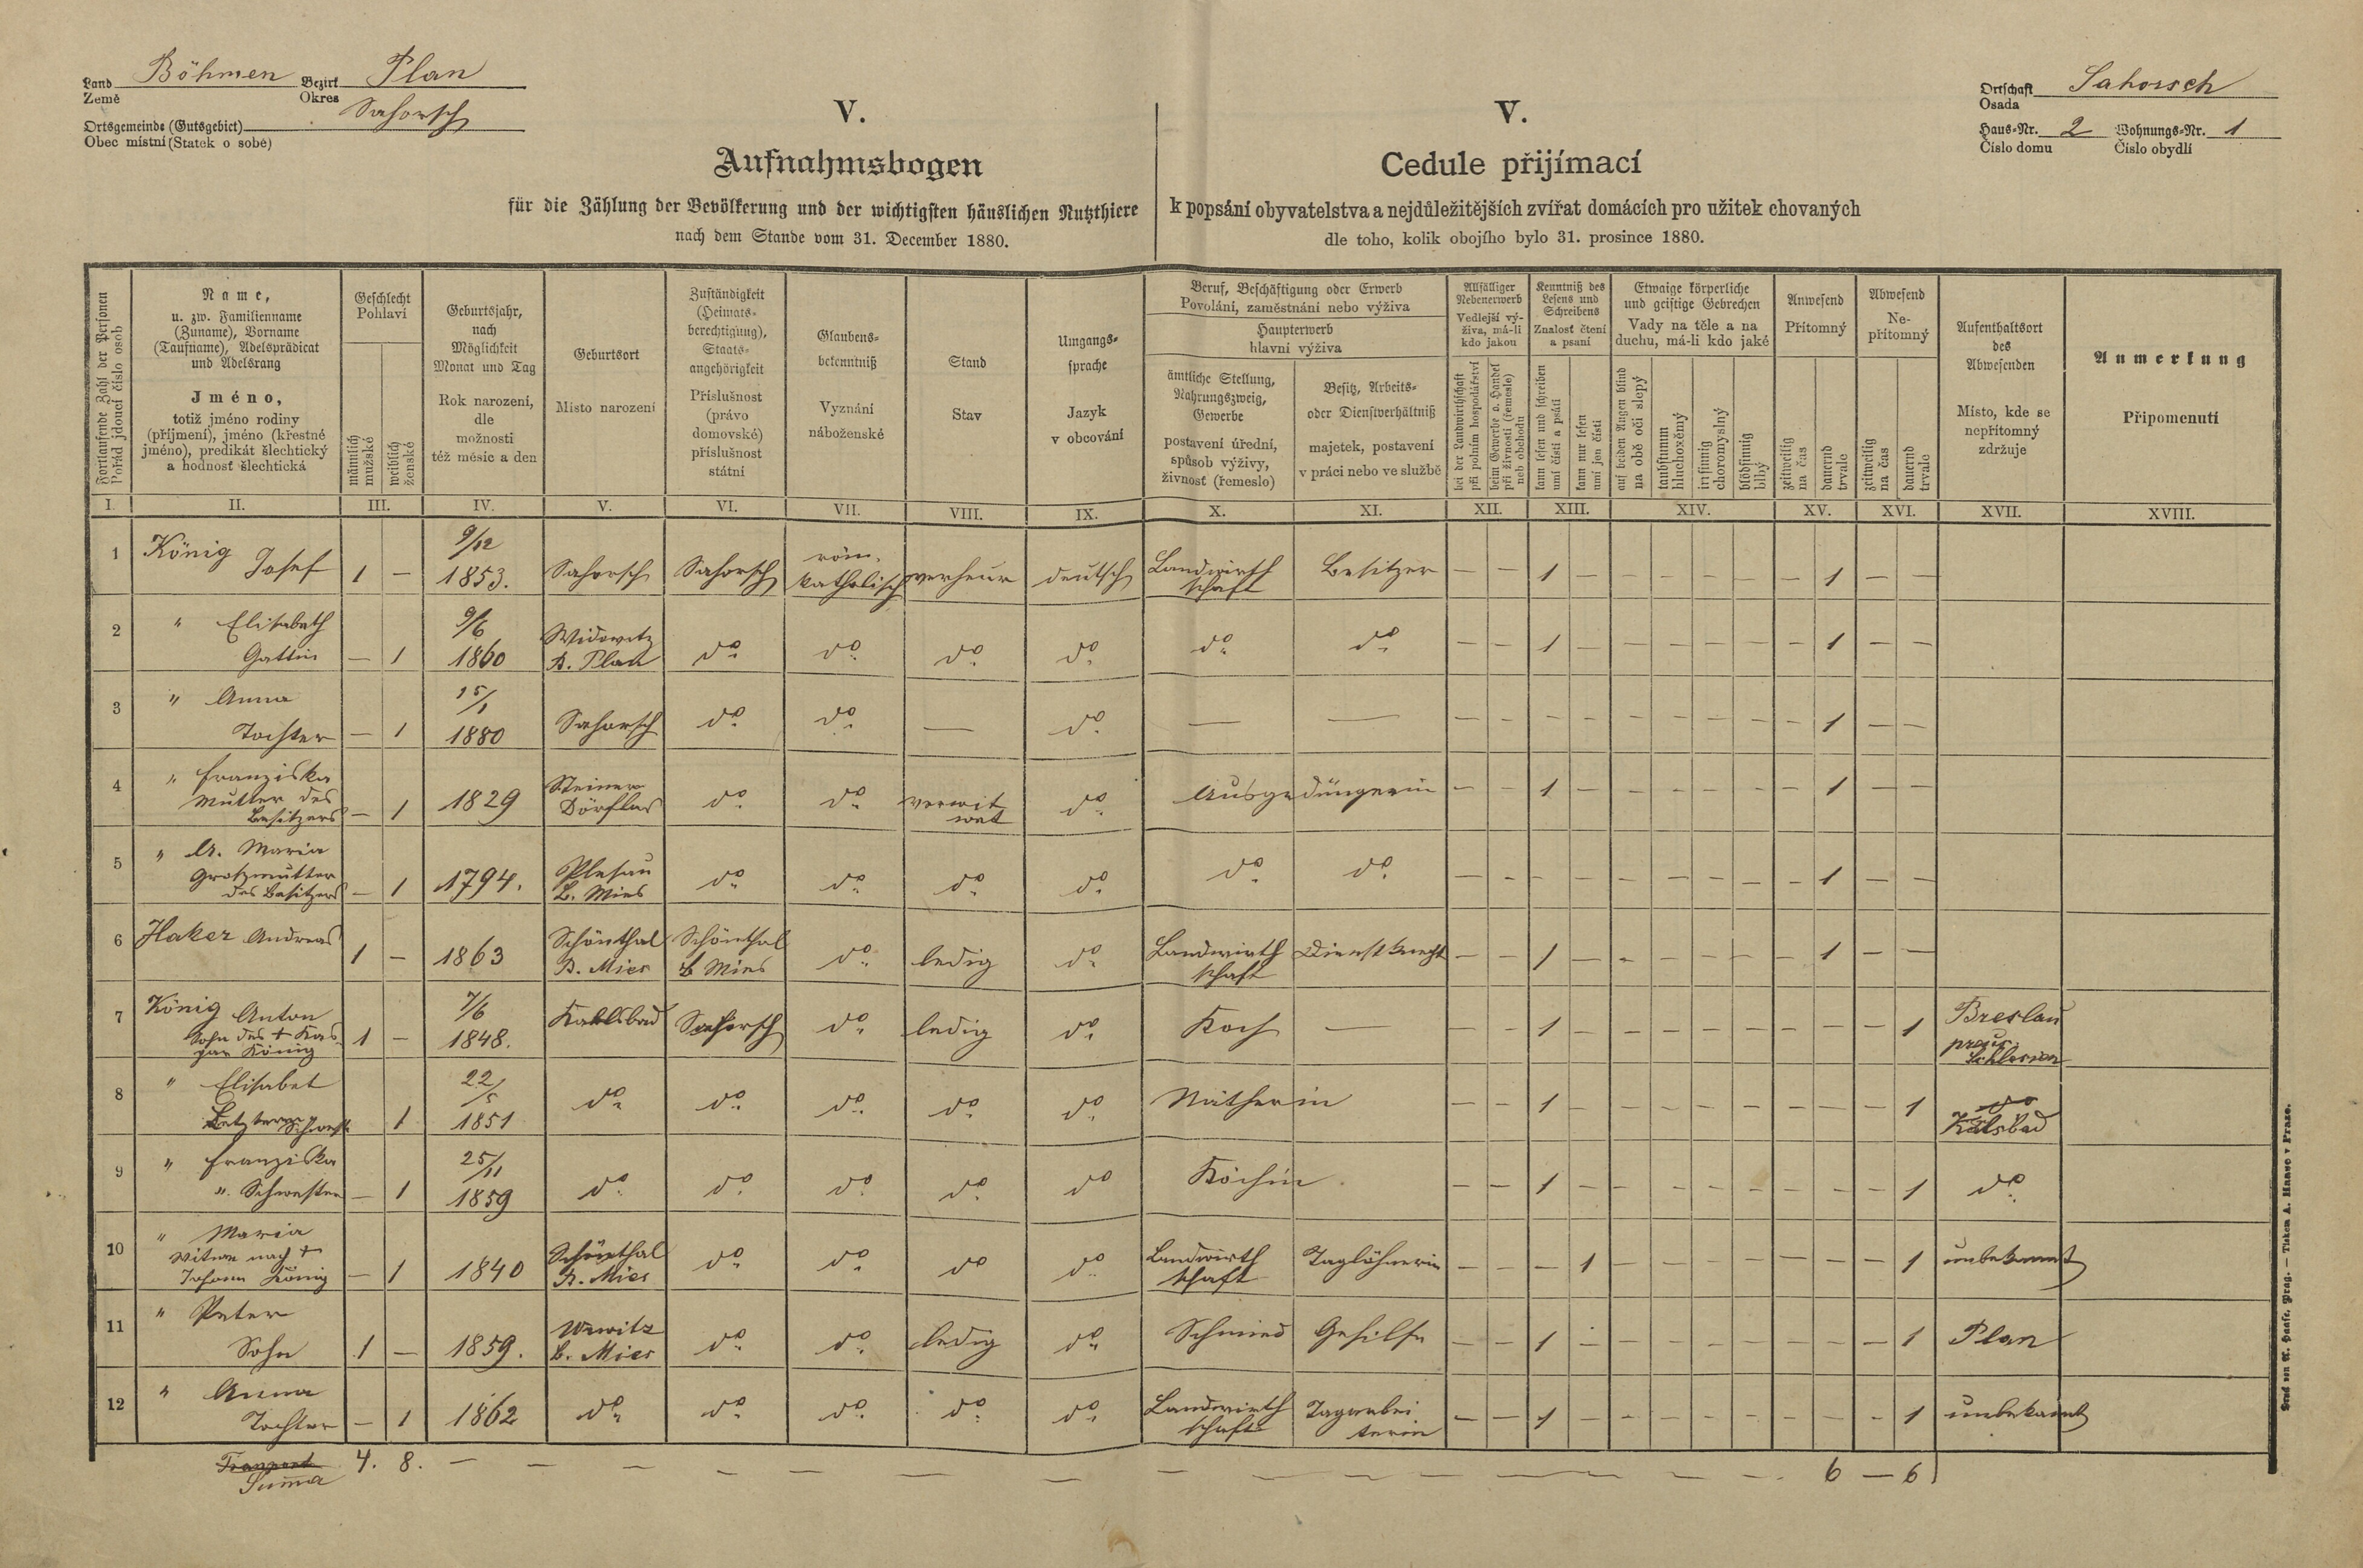 Land Böhmen Bezirk Plan
Země Okres
Ortsgemeinde (Gutsgebiet) Sahorsch
Obec místní (Statek o sobě)
Ortschaft Sahorsch
Osada
Haus-Nr. 2 Wohnungs-Nr. 1
Číslo domu Číslo obydlí
V.
Aufnahmsbogen
für die Zählung der Bevölkerung und der wichtigsten häuslichen Nutzthiere
nach dem Stande vom 31. December 1880.
V.
Cedule přijímací
k popsání obyvatelstva a nejdůležitějších zvířat domácích pro užitek chovaných
dle toho, kolik obojího bylo 31. prosince 1880.
Fortlaufende Zahl der Personen
Pořád jdoucí číslo osob
Name,
u. zw. Familienname
(Zuname), Vorname
(Taufname), Adelsprädicat
und Adelsrang
Jméno,
totiž jméno rodiny
(příjmení), jméno (křestné
jméno), predikát šlechtický
a hodnosť šlechtická
Geschlecht
Pohlaví
männlich
mužské
weiblich
ženské
Geburtsjahr,
nach
Möglichkeit
Monat und Tag
Rok narození,
dle
možnosti
též měsíc a den
Geburtsort
Místo narození
Zuständigkeit
(Heimats-
berechtigung),
Staats-
angehörigkeit
Příslušnost
(právo
domovské)
příslušnost
státní
Glaubens-
bekenntniß
Vyznání
náboženské
Stand
Stav
Umgangs-
sprache
Jazyk
v obcování
Beruf, Beschäftigung oder Erwerb
Povolání, zaměstnání nebo výživa
Haupterwerb
hlavní výživa
ämtliche Stellung,
Nahrungszweig,
Gewerbe
postavení úřední,
spůsob výživy,
živnosť (řemeslo)
Besitz, Arbeits-
oder Dienstverhältniß
majetek, postavení
v práci nebo ve službě
Allfälliger
Nebenerwerb
Vedlejší vý-
živa, má-li
kdo jakou
bei der Landwirthschaft
při polním hospodářství
beim Gewerbe o. Handel
při živnosti (řemesle)
neb obchodu
Kenntniß des
Lesens und
Schreibens
Znalosť čtení
a psaní
kann lesen und schreiben
umí čísti a psáti
kann nur lesen
umí jen čísti
Etwaige körperliche
und geistige Gebrechen
Vady na těle a na
duchu, má-li kdo jaké
auf beiden Augen blind
na obě oči slepý
taubstumm
hluchoněmý
irrsinnig
choromyslný
blödsinnig
blbý
Anwesend
Přítomný
zeitweilig
na čas
dauernd
trvale
Abwesend
Ne-
přítomný
zeitweilig
na čas
dauernd
trvale
Aufenthaltsort
des
Abwesenden
Místo, kde se
nepřítomný
zdržuje
Anmerkung
Připomenutí
I. II. III. IV. V. VI. VII. VIII. IX. X. XI. XII. XIII. XIV. XV. XVI. XVII. XVIII.
1 König Josef 1 — 9/12 1853. Sahorsch Sahorsch röm. katholisch verheur deutsch Landwirthschaft Besitzer — — 1 — — — — — — 1 — —
2 " Elisabeth Gattin — 1 9/6 1860 Widowitz B. Plan do do do do do do — — 1 — — — — — — 1 — —
3 " Anna Tochter — 1 15/1 1880 Sahorsch do do — do — — — — — — — — — — — 1 — —
4 " Franziska Mutter des Besitzers — 1 1829 Steiner Dörflas do do verwitwet do Ausgedüngerin — — 1 — — — — — — 1 — —
5 " A. Maria Großmutter des Besitzers — 1 1794. Plesau B. Mies do do do do do do — — — — — — — — — 1 — —
6 Haker Andreas 1 — 1863 Schönthal B. Mies Schönthal B Mies do ledig do Landwirthschaft Dienstknecht — — 1 — — — — — — 1 — —
7 König Anton Sohn des + Kaspar König 1 — 7/6 1848. Kahlsbad Sahorsch do ledig do Koch — — — 1 — — — — — — — — 1 Breslau preus. Schlesien
8 " Elisabet Letzterer Schwest. 1 22/5 1851 do do do do do Nätherin — — 1 — — — — — — — — 1 Kalsbad
9 " Franziska " Schwester — 1 25/11 1859 do do do do do Köchin — — 1 — — — — — — — — 1 do
10 " Maria Witwe nach + Johann König — 1 1840 Schönthal B. Mies do do do do Landwirthschaft Taglöhnerin — — — 1 — — — — — — — 1 unbekannt
11 " Peter Sohn 1 — 1859. Wrwitz B. Mies do do ledig do Schmied Gehilfe — — 1 — — — — — — — — 1 Plan
12 " Anna Tochter — 1 1862 do do do do do Landwirthschaft Tagarbeiterin — — 1 — — — — — — — — 1 unbekannt
Transport 4. 8. — — — 6 — 6
Summa
Druck von A. Haase, Prag. — Tiskem A. Haase v Praze.